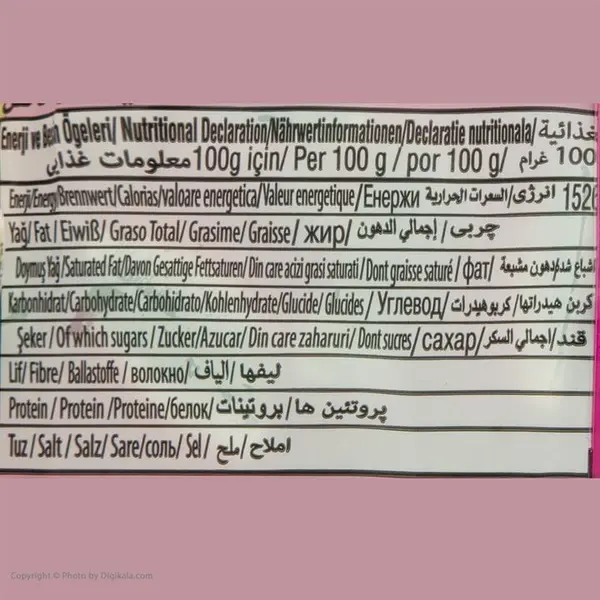 Enerji ve Besin Ögeleri/ Nutritional Declaration/Nährwertinformationen/Declaratie nutritionala/ غذائية
معلومات غذایی 100g için/ Per 100 g / por 100 g/ 100 غرام
Enerji/Energy/Brennwert/Calorias/valoare energetica/Valeur energetique/Енержи انرژی/السعرات الحرارية 1526
Yağ/ Fat / Eiwiß/ Graso Total/ Grasime/ Graisse/ жир/ چربی / إجمالي الدهون
Doymuş Yağ /Saturated Fat/Davon Gesattige Fettsaturen/ Din care acizi grasi saturati / Dont graisse saturé / фат/ اشباع شده/دهون مشبعة
Karbonhidrat/Carbohydrate/Carbohidrato/Kohlenhydrate/Glucide/ Glucides / Углевод/ کربن هیدراتها/ كربوهيدرات
Şeker / Of which sugars / Zucker/Azucar/ Din care zaharuri/ Dont sucres/ сахар/ قند/إجمالي السكر
Lif/ Fibre/ Ballastoffe / волокно/ ليفها/ ألياف
Protein / Protein /Proteine/белок/ پروتئین ها /بروتينات
Tuz / Salt / Salz/ Sare/соль/ Sel / املاح /ملح
Copyright © Photo by Digikala.com